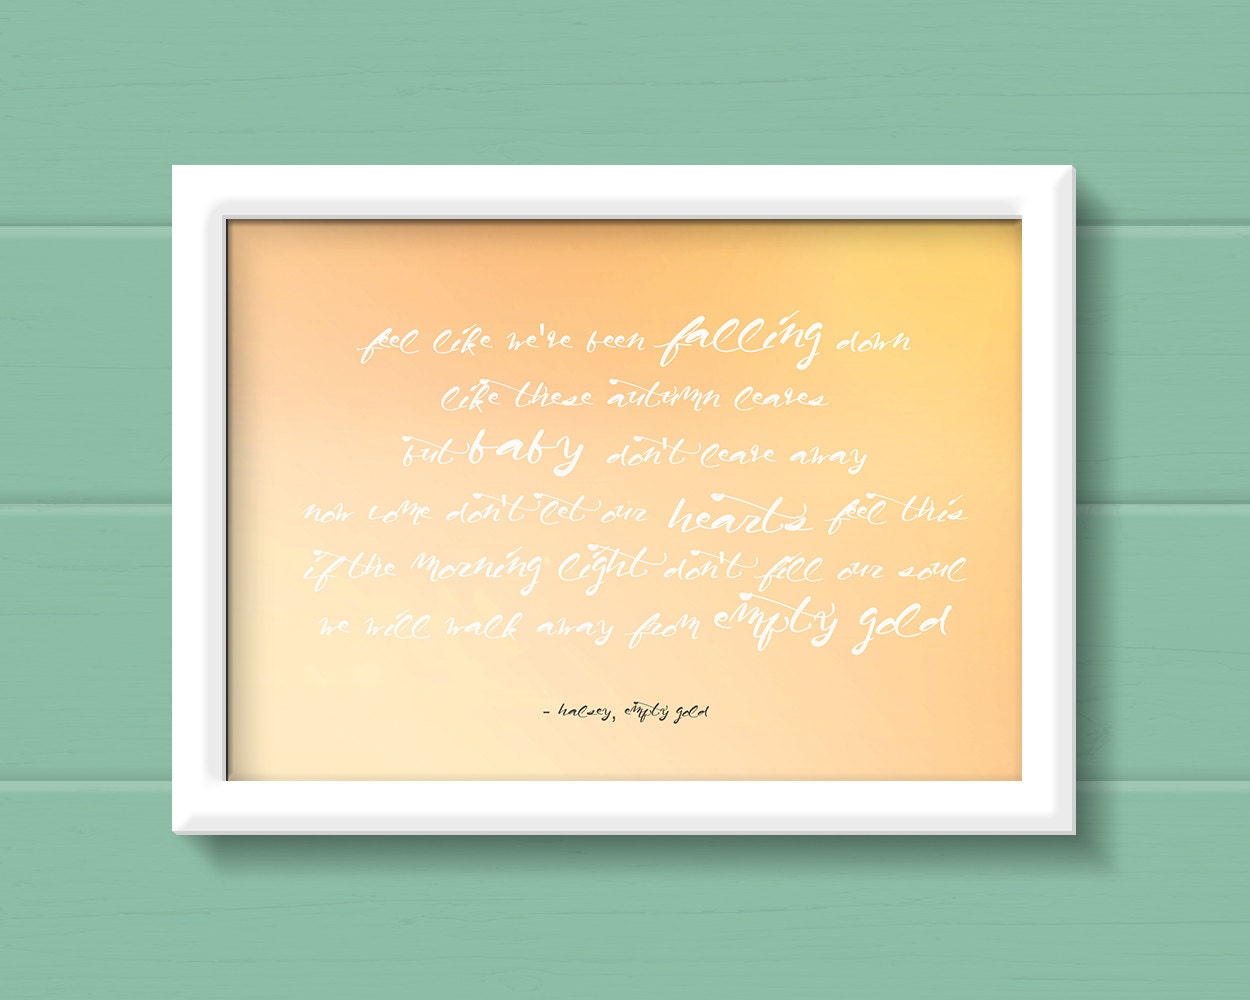 feel like we're been falling down
like these autumn leaves
but baby don't leave away
now come don't let our hearts feel this
if the morning light don't fill our soul
we will walk away from empty gold
- halsey, empty gold